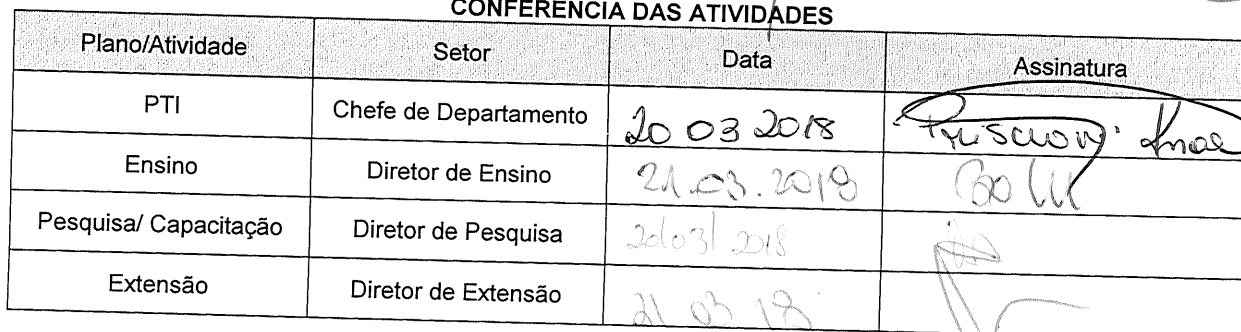 CONFERÊNCIA DAS ATIVIDADES
Plano/Atividade Setor Data Assinatura
PTI Chefe de Departamento 20 03 2018
Ensino Diretor de Ensino 21.03.2018
Pesquisa/ Capacitação Diretor de Pesquisa 20/03/ 2018
Extensão Diretor de Extensão 21 03 18